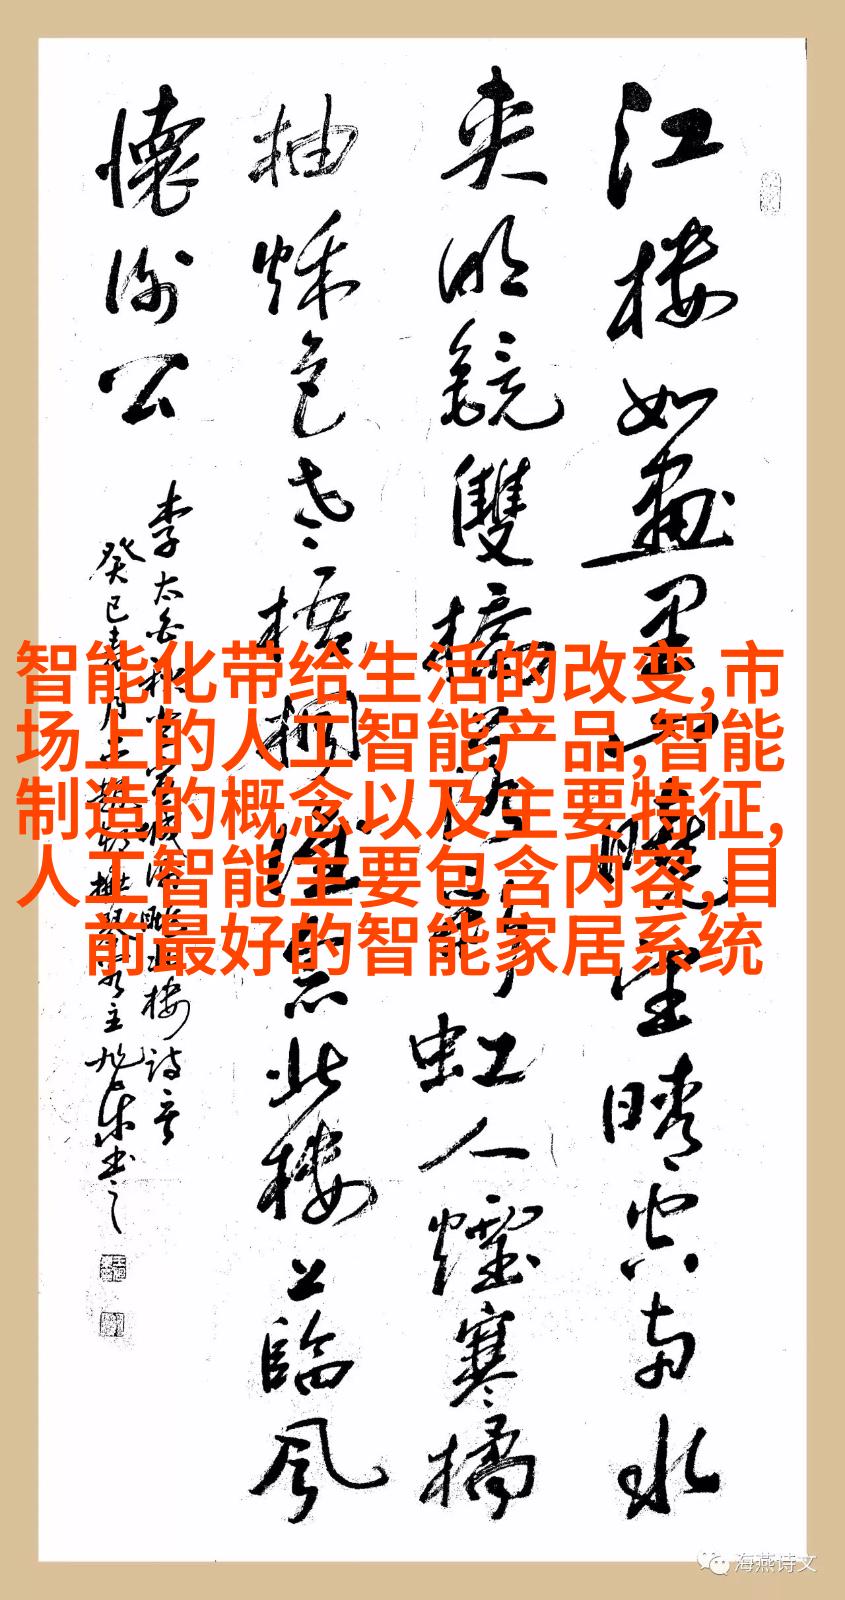 江樓如畫里山曉望晴空兩水
夾明鏡雙橋落彩虹人煙寒橘
柚秋色老梧桐誰念北樓上臨風
懷謝公
李太白秋登宣城謝朓北樓詩意
癸巳春月
智能化带给生活的改变,市
场上的人工智能产品,智能
制造的概念以及主要特征,
人工智能主要包含内容,目
前最好的智能家居系统
海燕诗文